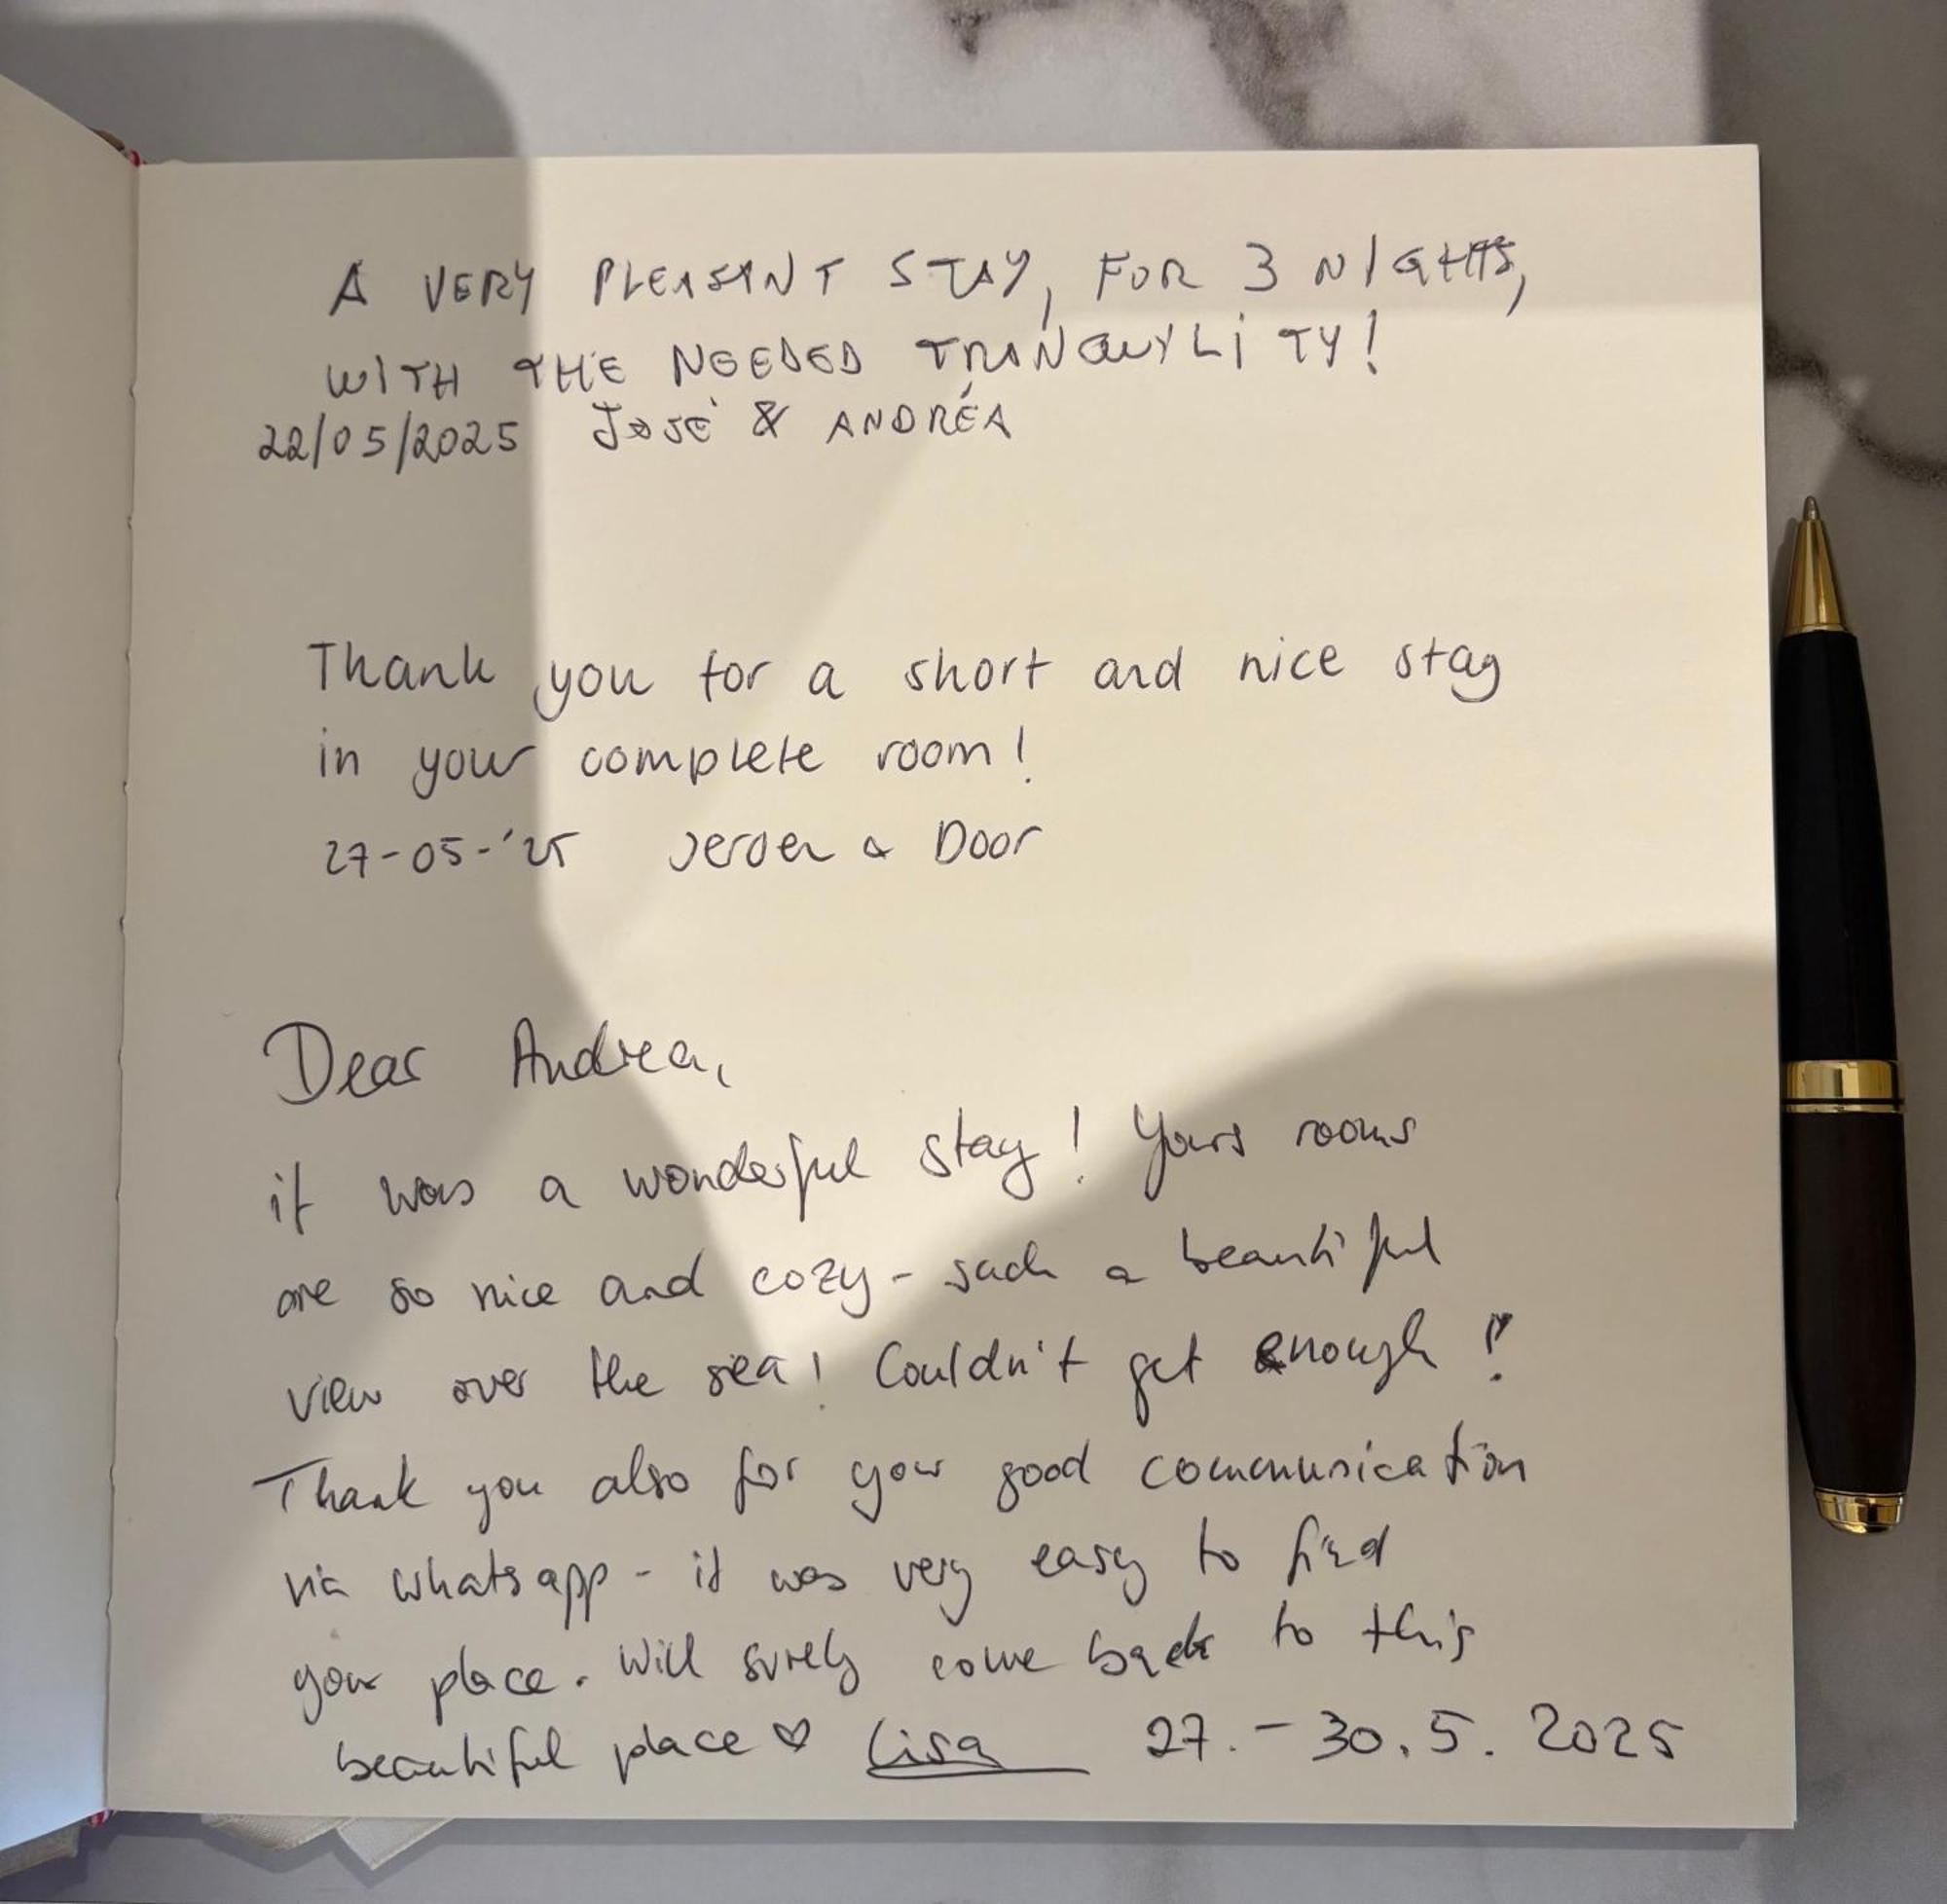 A VERY PLEASANT STAY, FOR 3 NIGHTS,
WITH THE NEEDED TRANQUYLITY!
22/05/2025 José & ANDRÉA
Thank you for a short and nice stay
in your complete room!
27-05-'25 Jeroen & Door
Dear Andrea,
it was a wonderful stay! Yours rooms
are so nice and cozy - such a beautiful
view over the sea! Couldn't get enough!
Thank you also for your good communication
via whatsapp - it was very easy to find
your place. Will surely come back to this
beautiful place ♡ Lisa 27. - 30.5.2025